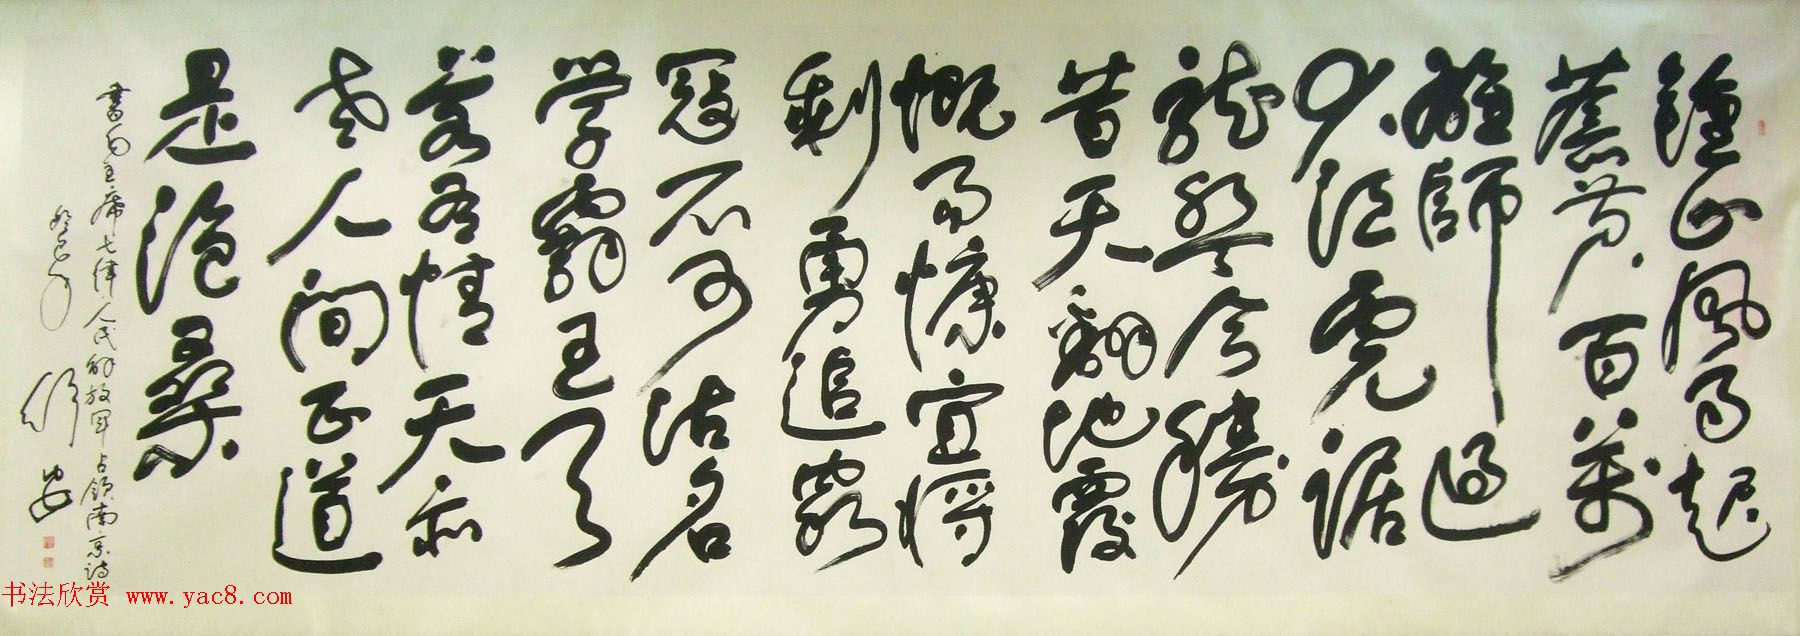 鐘山風雨起
蒼黄百萬
雄師過
大江虎踞
龍盤今勝
昔天翻地覆
慨而慷宜將
剩勇追窮
寇不可沽名
学霸王天
若有情天亦
老人間正道
是滄桑
書毛主席七律人民解放軍占領南京詩
书法欣赏 www.yac8.com